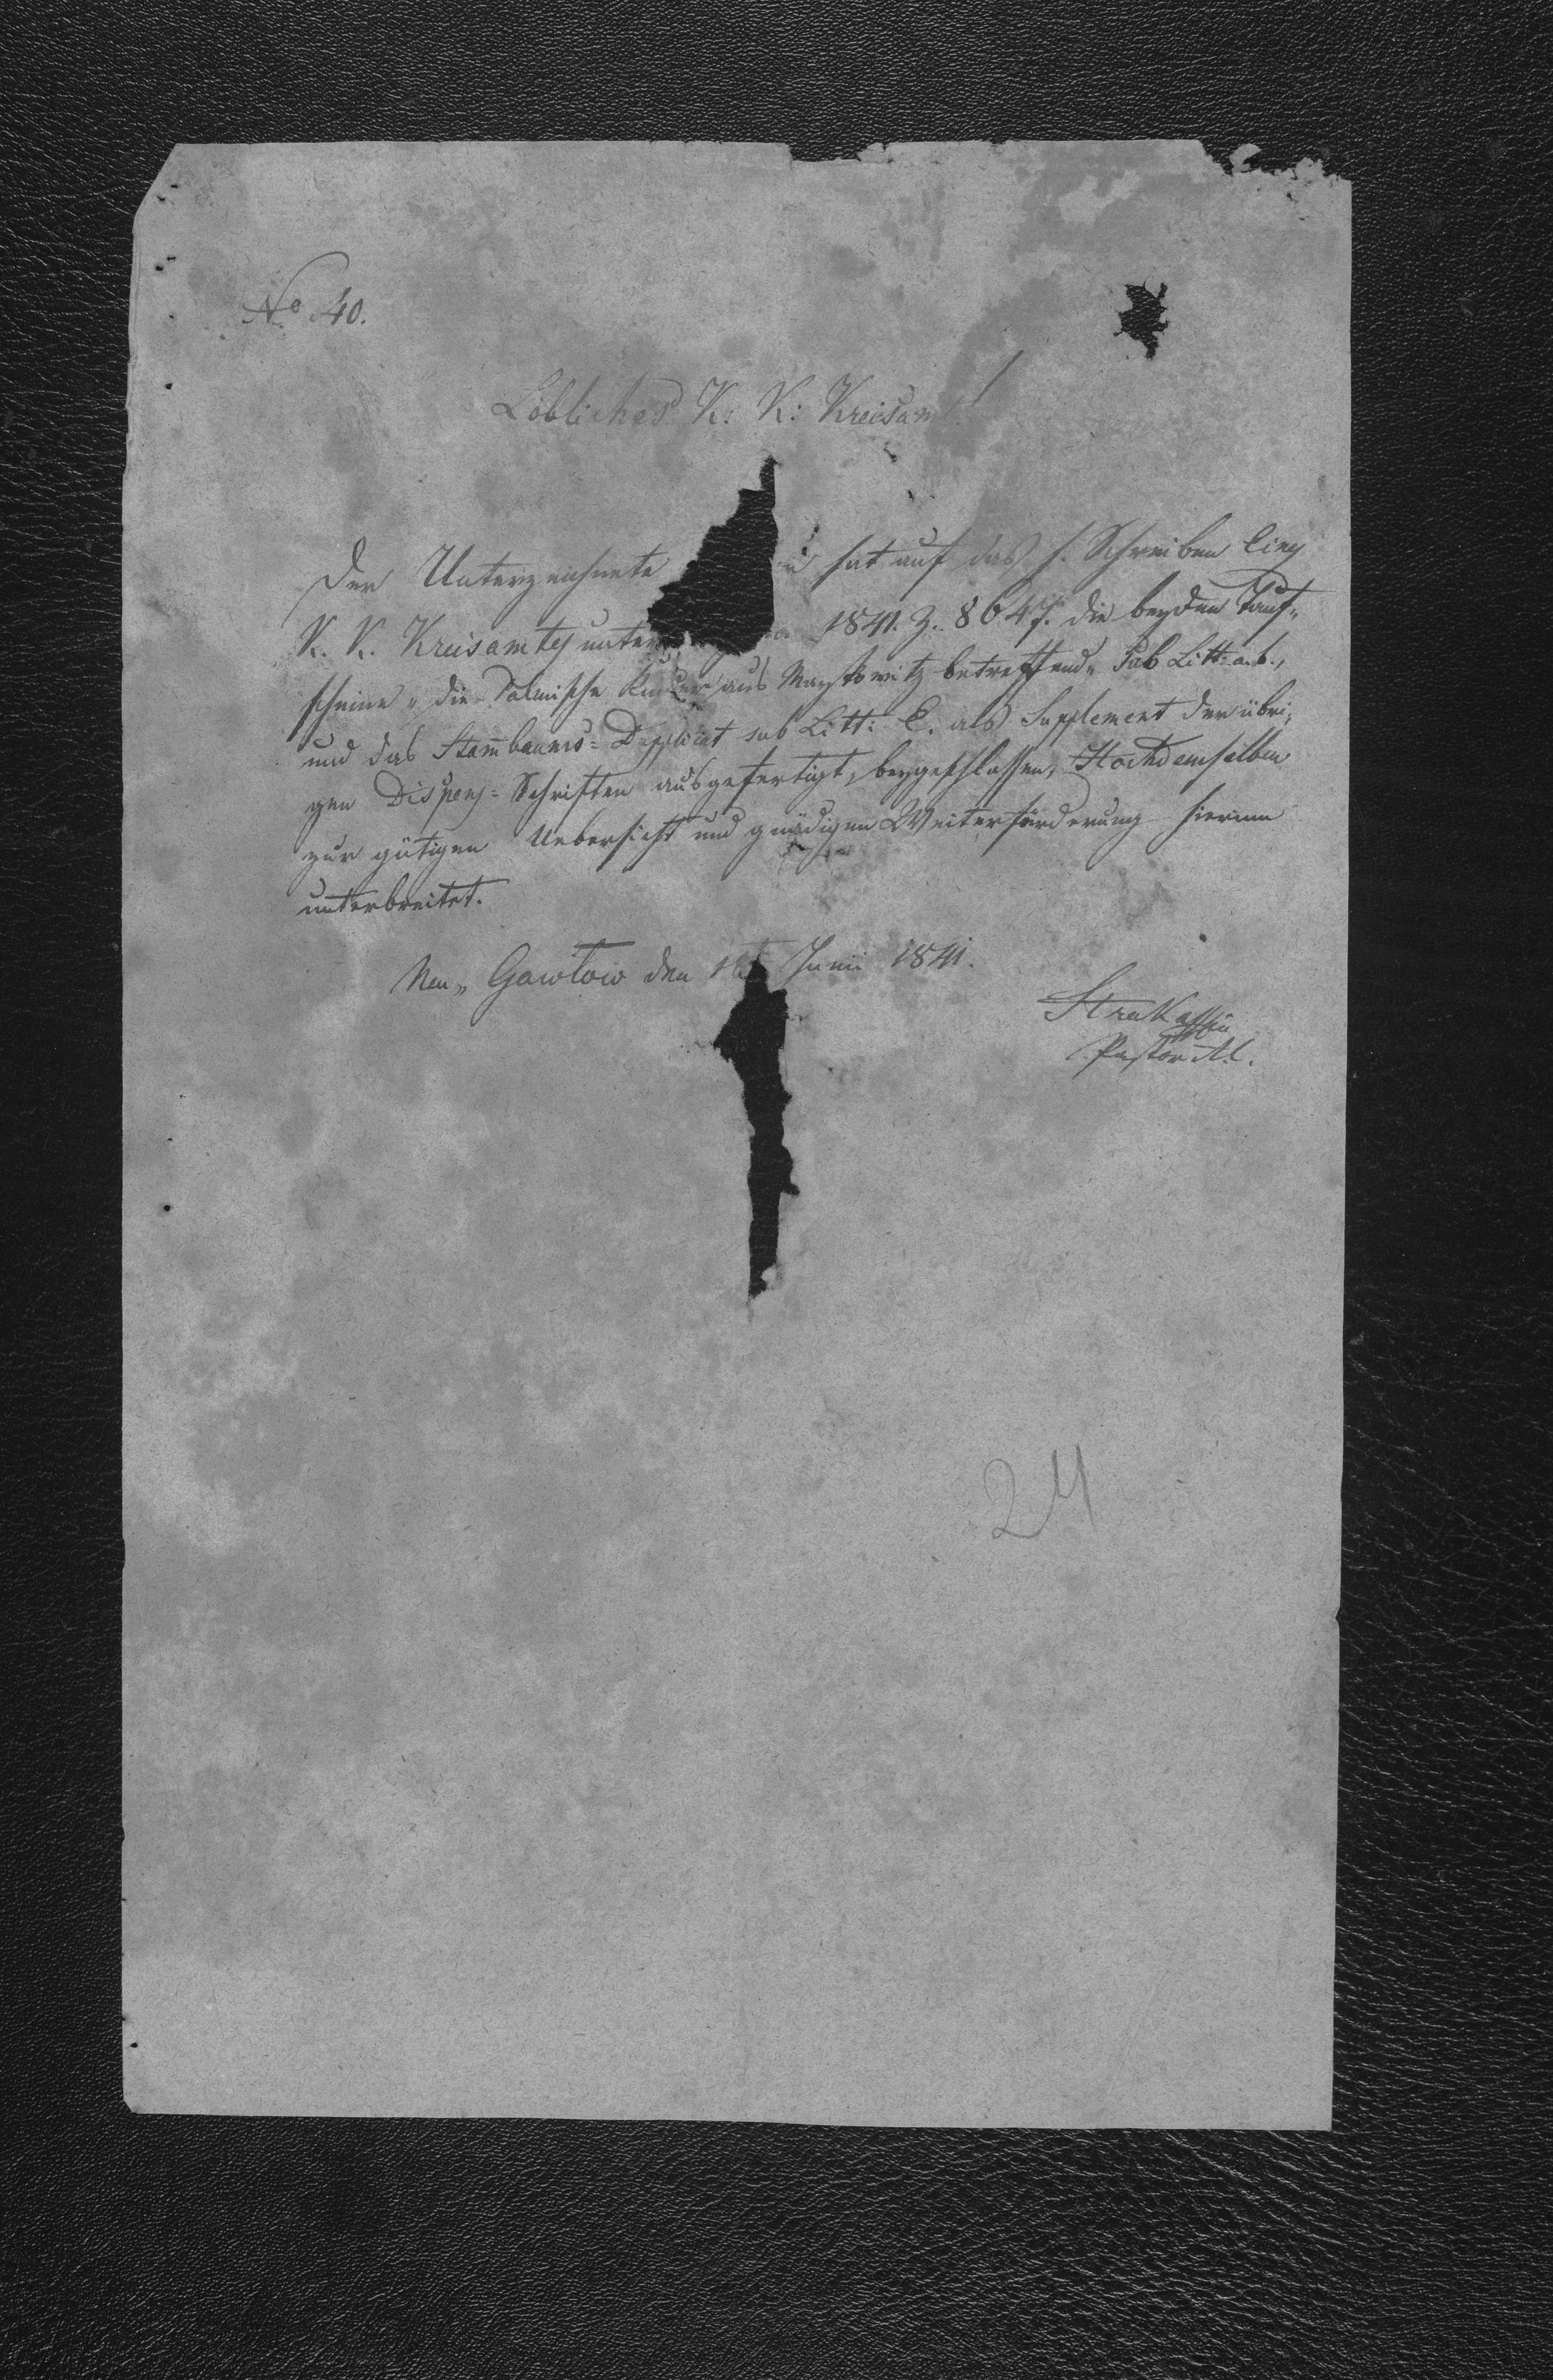 No 40.
Löbliches K: K: Kreisamt!
Der Unterzeichnete hat auf das h. Schreiben Eines
K. K. Kreisamtes unter 1841. Z. 8647. die beyden Tauf-
scheine, die Kinder aus betreffend, sub Litt: a. b.,
und das Stam̄baums-Duplicat sub Litt: C. als Supplement der übri-
gen Dispens-Schriften ausgefertigt, beygeschlossen, Hochdemselben
zur gütigen Uebersicht und gnädigen Weiterförderung hiermit
unterbreitet.
Neu-Gawłow den Junii 1841.
Pastor
24